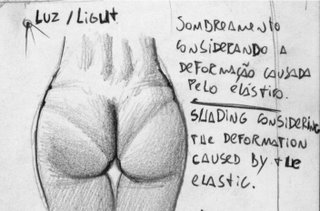 LUZ / LIGHT
SOMBREAMENTO
CONSIDERANDO A
DEFORMAÇÃO CAUSADA
PELO ELÁSTICO.
SHADING CONSIDERING
THE DEFORMATION
CAUSED BY THE
ELASTIC.